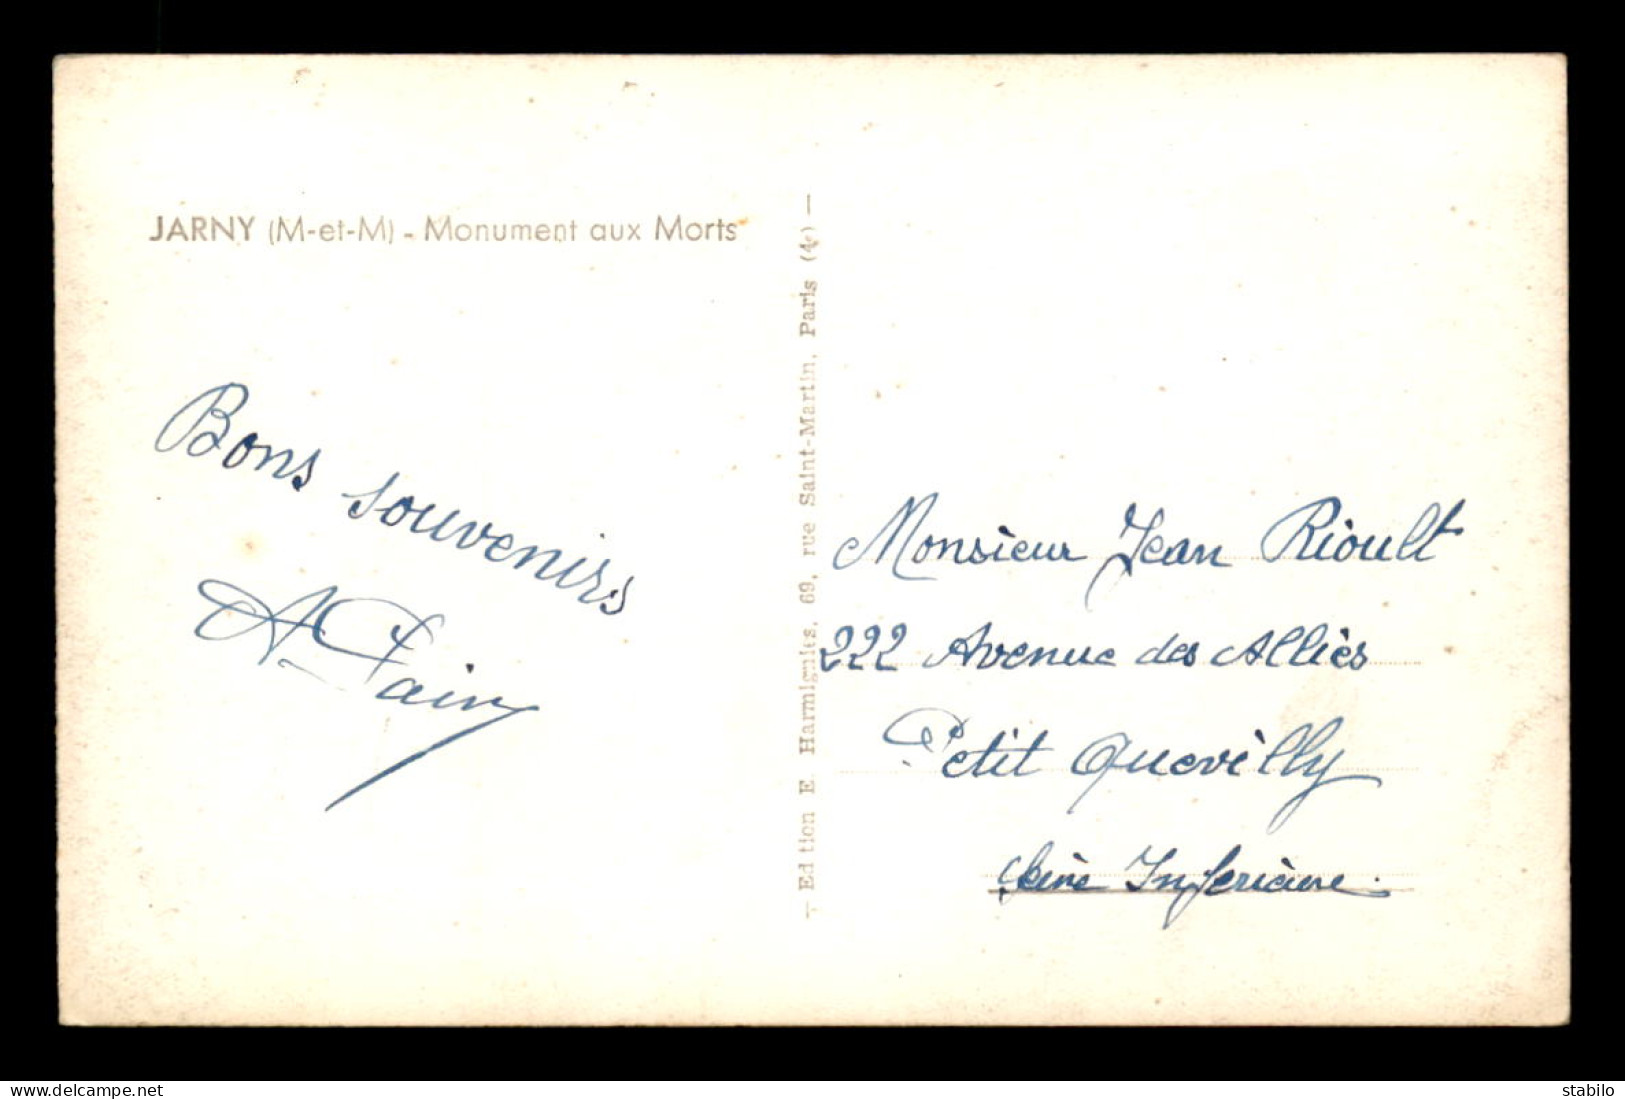 JARNY (M-et-M) - Monument aux Morts
Bons souvenirs
— Edition E. Harmignies, 69, rue Saint-Martin, Paris (4e) —
Monsieur Jean Rioult
222 Avenue des Alliès
Petit Quevilly
Seine Inferieure.
www.delcampe.net
stabilo